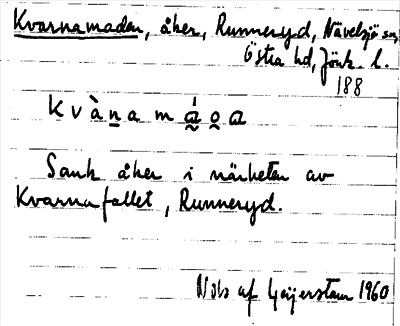 Kvarnamaden, åker, Runneryd, Nävelsjö sn,
Östra hd, Jönk. l.
188
Kvànamáoa
Sank åker i närheten av
Kvarnafallet, Runneryd.
Nils af Geijerstam 1960